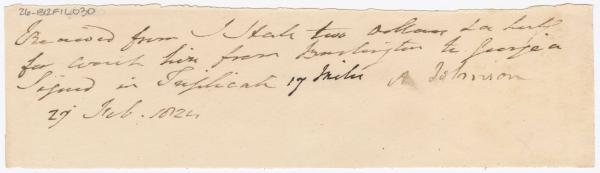 26-B12F1L030
Received from J Hale two dollars & a half
for coach hire from Burlington to Georgia
Signed in Triplicate 17 Miles A Johnson
27 Feb. 1824